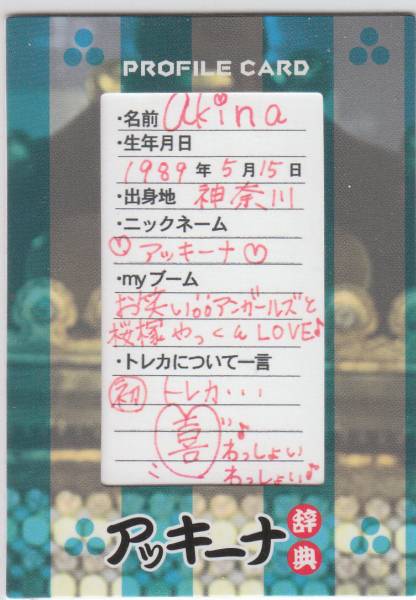 PROFILE CARD
・名前 akina
・生年月日
1989年5月15日
・出身地 神奈川
・ニックネーム
♡アッキーナ♡
・myブーム
お笑い!!アンガールズと
桜塚やっくんLOVE♪
・トレカについて一言
初トレカ・・・
喜♪
わっしょい
わっしょい♪
アッキーナ辞典